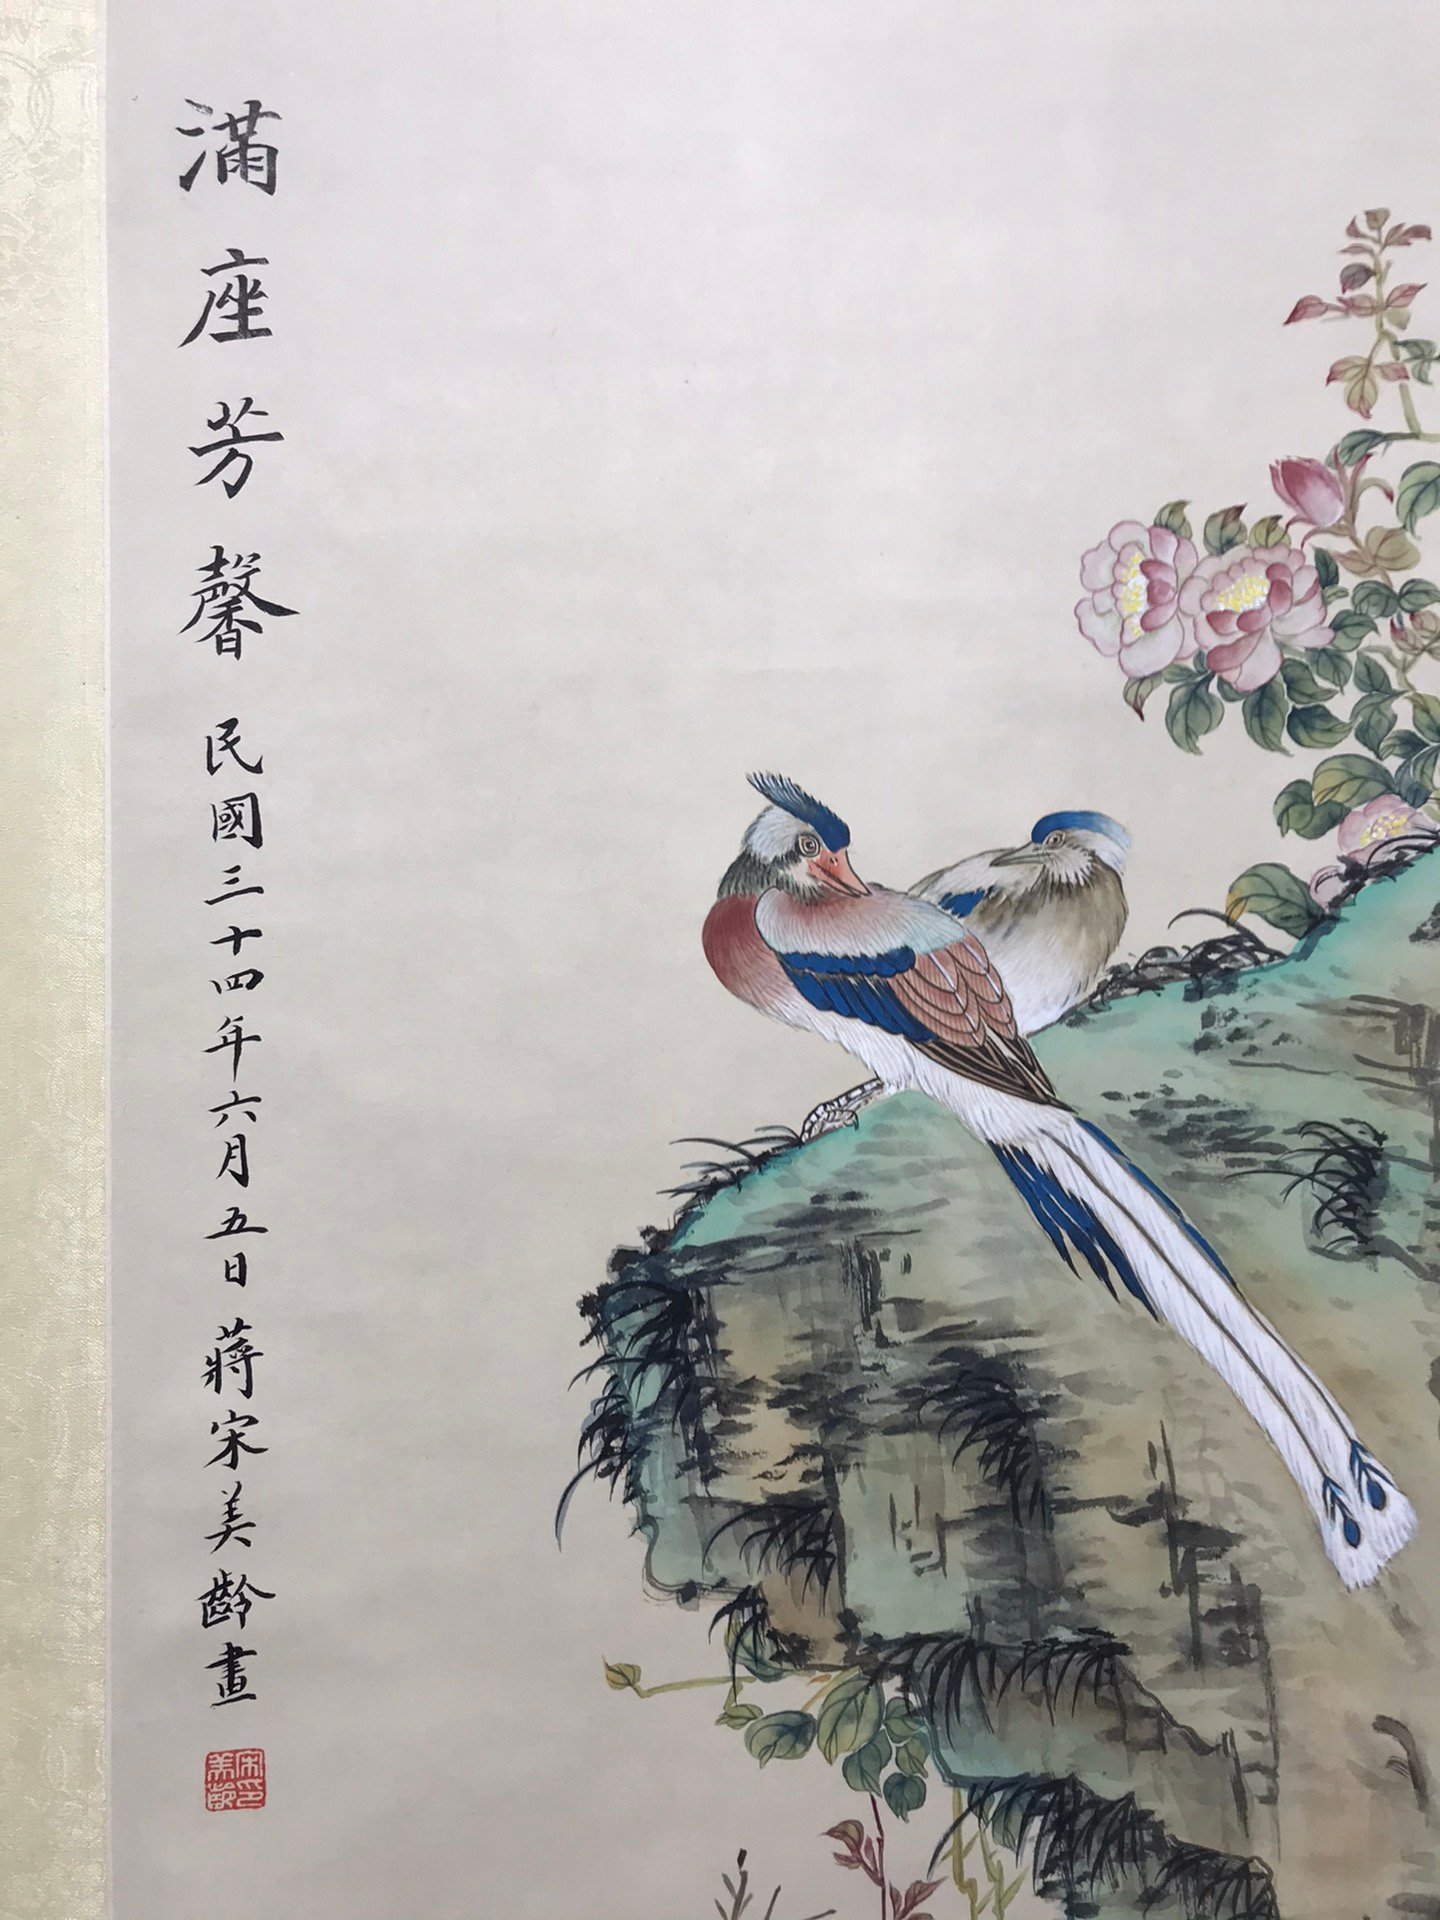 滿座芳馨 民國三十四年六月五日 蔣宋美齡畫
宋美齡印